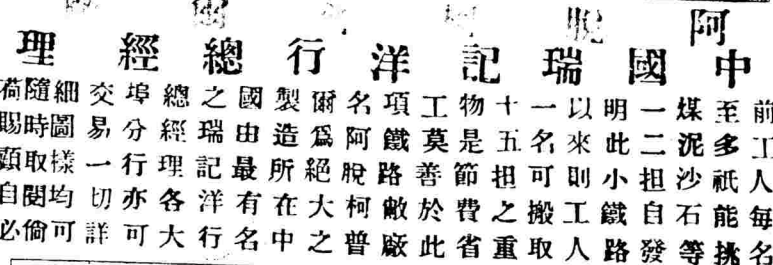 阿脫
中國瑞記洋行總經理
前工人每名
至多祇能挑
煤泥沙石等
一二担自發
明此小鐵路
以來則工人
一名可搬取
十五担之重
物是節費省
工莫善於此
項鐵路敝廠
名阿脫柯普
爾爲絕大之
製造所在中
國由最有名
之瑞記洋行
總經理各大
埠分行亦可
交易一切詳
細圖樣均可
隨時取閱倘
荷賜顧自必